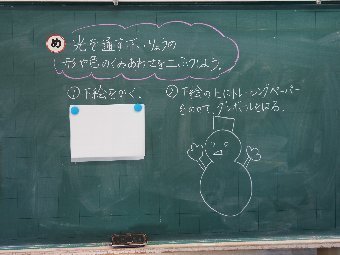 め 光を通すざいりょうの
形や色のくみあわせを工ふうしよう。
① 下絵をかく。
② 下絵の上にトレーシングペーパー
をのせて、ダンボールをはる。